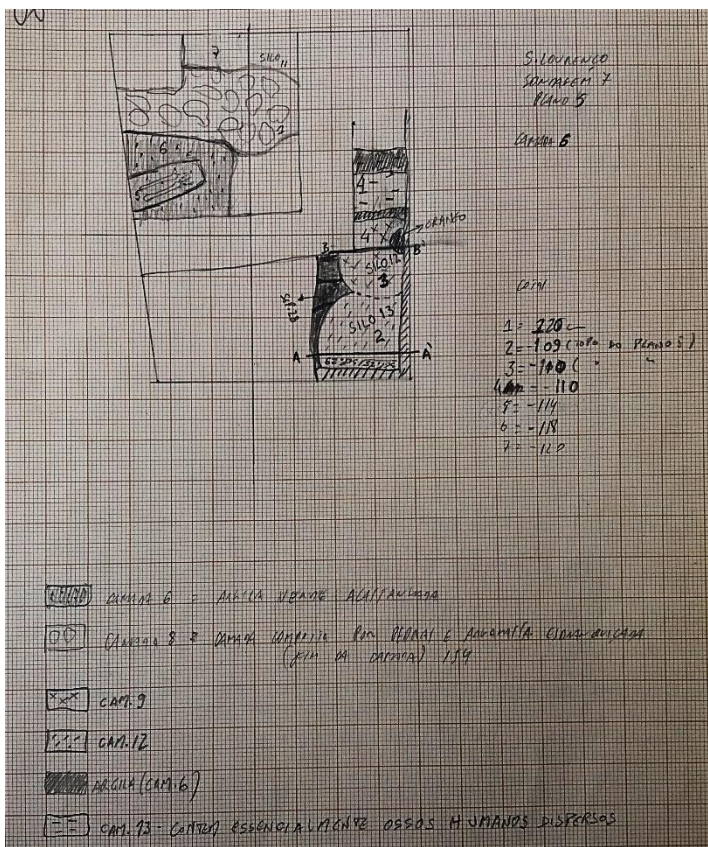 7
SILO 11
S. LOURENÇO
SONDAGEM 7
PLANO 5
CAMADA 6
2
6
5
4
4
CRANEO
3
B'
SILO 12
3
SILO 13
2
A
A'
COTAS
1 = 220
2 = -109 (TOPO DO PLANO 5)
3 = -100 ( " "
4 = -110
5 = -114
6 = -118
7 = -120
CAMADA 6 = ARGILA VERDE ACASTANHADA
CAMADA 8 = CAMADA COMPOSTA POR PEDRAS E ARGAMASSA ESBRANQUIÇADA
(FIM DA CAMADA) 154
CAM. 9
CAM. 12
ARGILA (CAM. 6)
CAM. 13 - CONTEM ESSENCIALMENTE OSSOS HUMANOS DISPERSOS